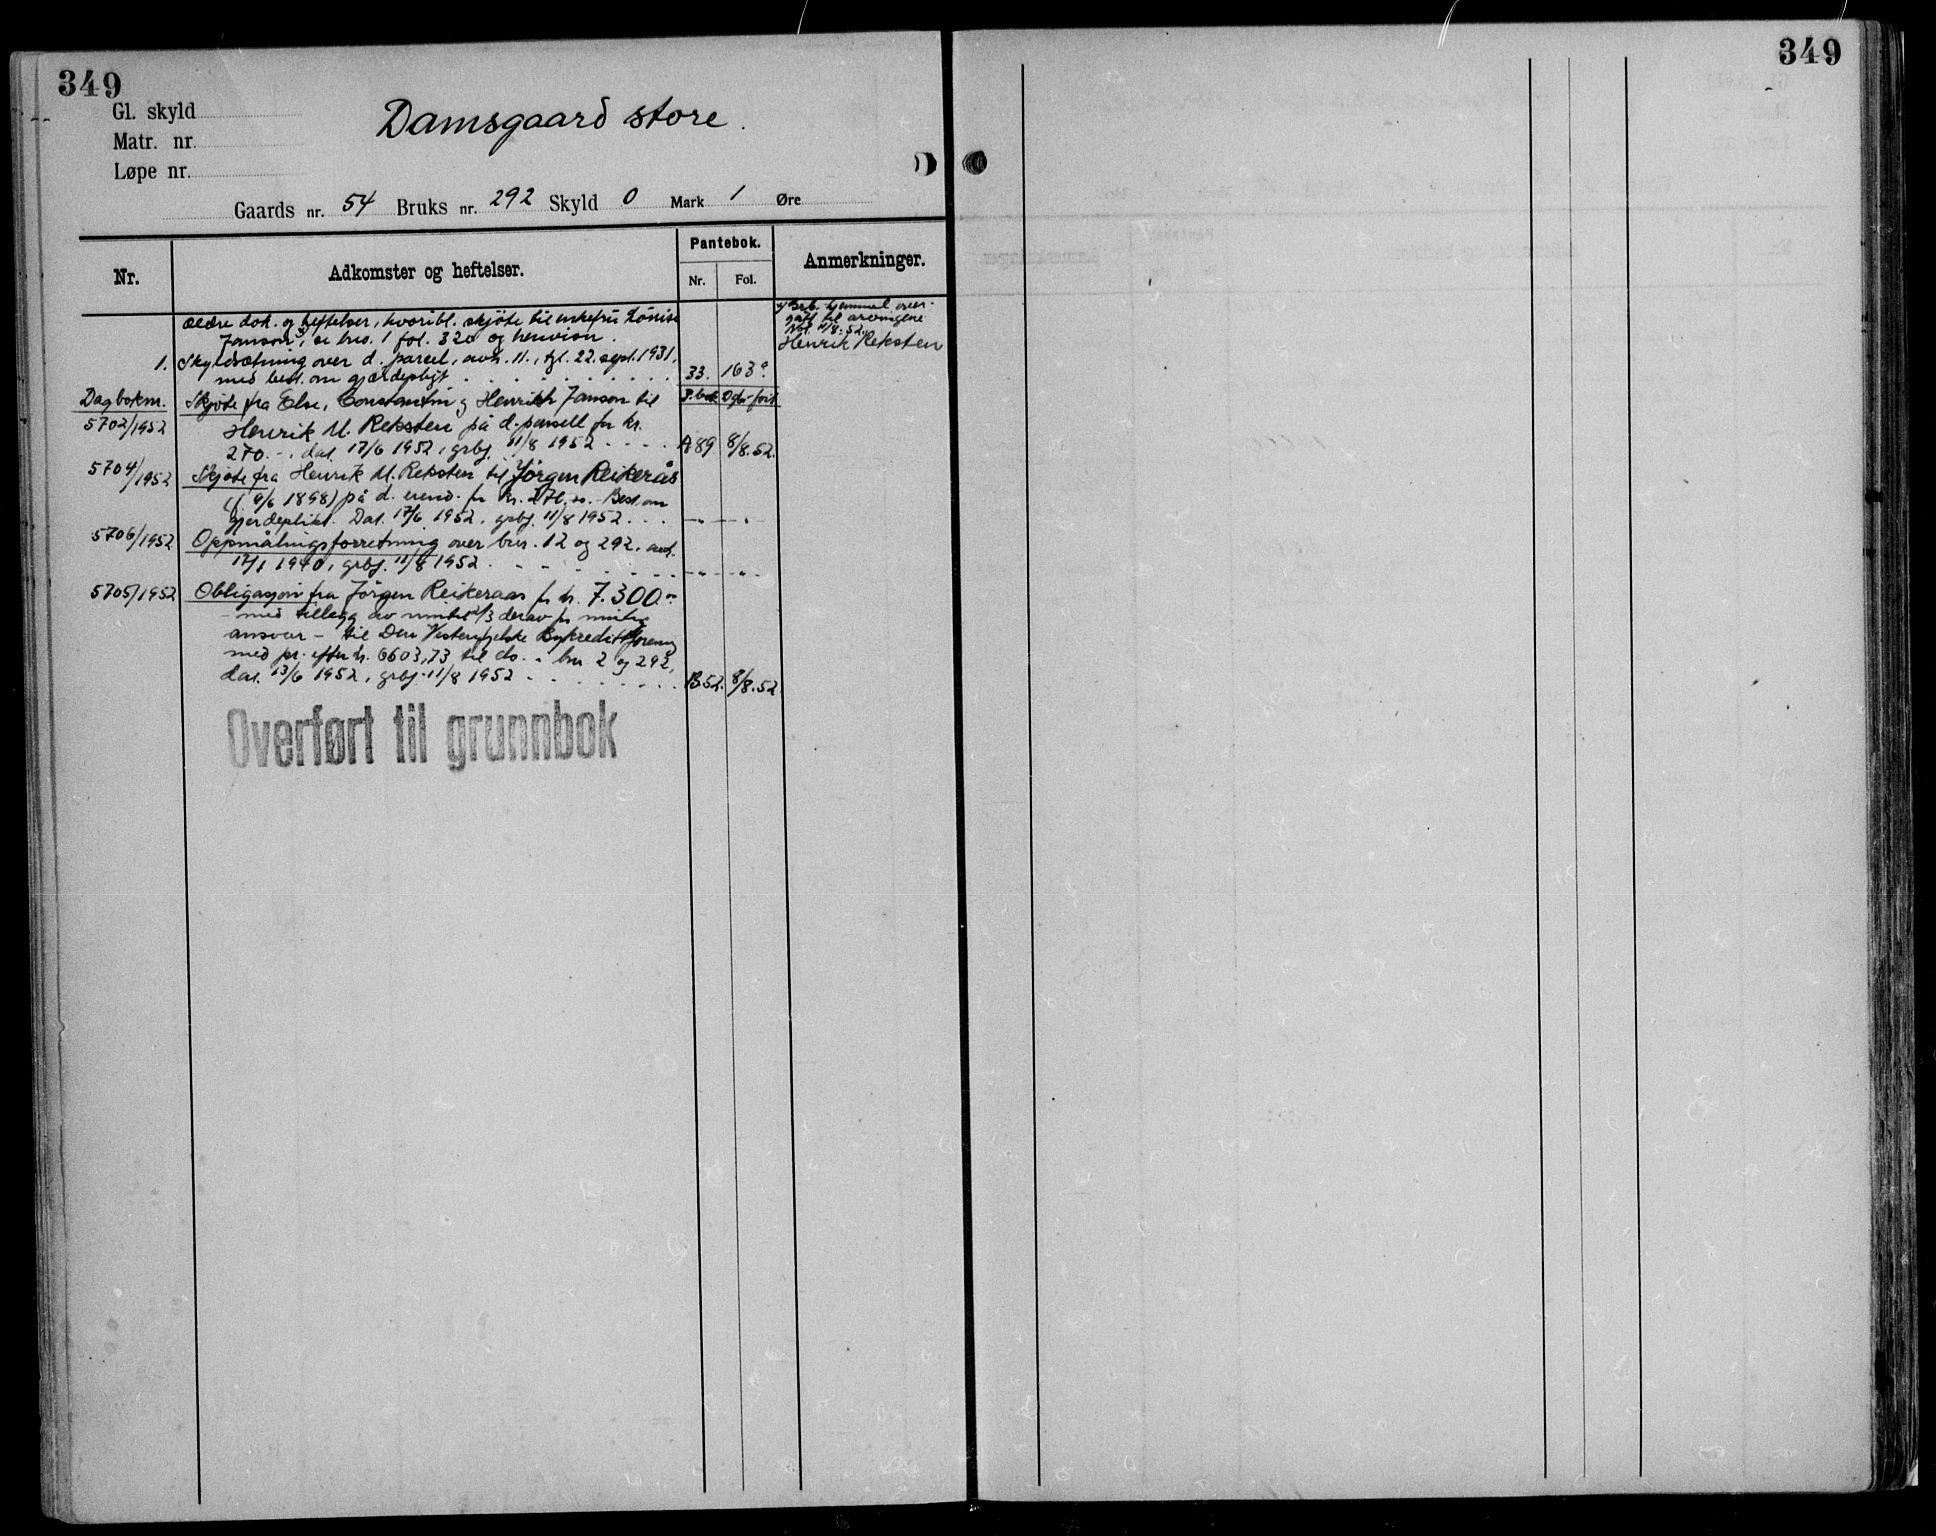 349
349
Gl. skyld
Damsgaard store.
Matr. nr.
Løpe nr.
Gaards nr. 54 Bruks nr. 292 Skyld 0 Mark 1 Øre
Nr.
Adkomster og heftelser.
Pantebok.
Nr. Fol.
Anmerkninger.
ældre dok. og heftelser, hvoribl. skjøte til enkefru Louise
Janson, se brs. 1 fol. 320 og henvisn.
1. Skyldsætning over d. parcel, avh. 11., tgl. 22. sept. 1931,
med best. om gjærdepligt 33. 163a.
hjemmel over-
gått til arvingene
11/8-52.
Henrik Reksten
Dagboknr. P.bok Dgb.ført
5702/1952 Skjøte fra Else, Constantin og Henrich Janson til
Henrik M. Reksten på d. parsell for kr.
270.-, dat. 17/6 1952, grbf. 11/8 1952 A89 8/8.52.
5704/1952 Skjøte fra Henrik M. Reksten til Jörgen Reikerås
(f. 9/6 1898) på d. eiend. for kr. 270.00. Best. om
gjerdeplikt. Dat. 17/6 1952, grbf. 11/8 1952 - " - " -
5706/1952 Oppmålingsforretning over bnr. 12 og 292, avh.
12/1 1940, grbf. 11/8 1952 - " - " -
5705/1952 Obligasjon fra Jörgen Reikeraas for kr. 7.300.-
- med tillegg av inntil 2/3 derav for mulig
ansvar - til Den Vestenfjelske Bykreditforening
med pr. efter kr. 6603,73 til do. - bnr 2 og 292,
dat. 13/6 1952, grbf. 11/8 1952 B.52. 8/8.52
Overført til grunnbok